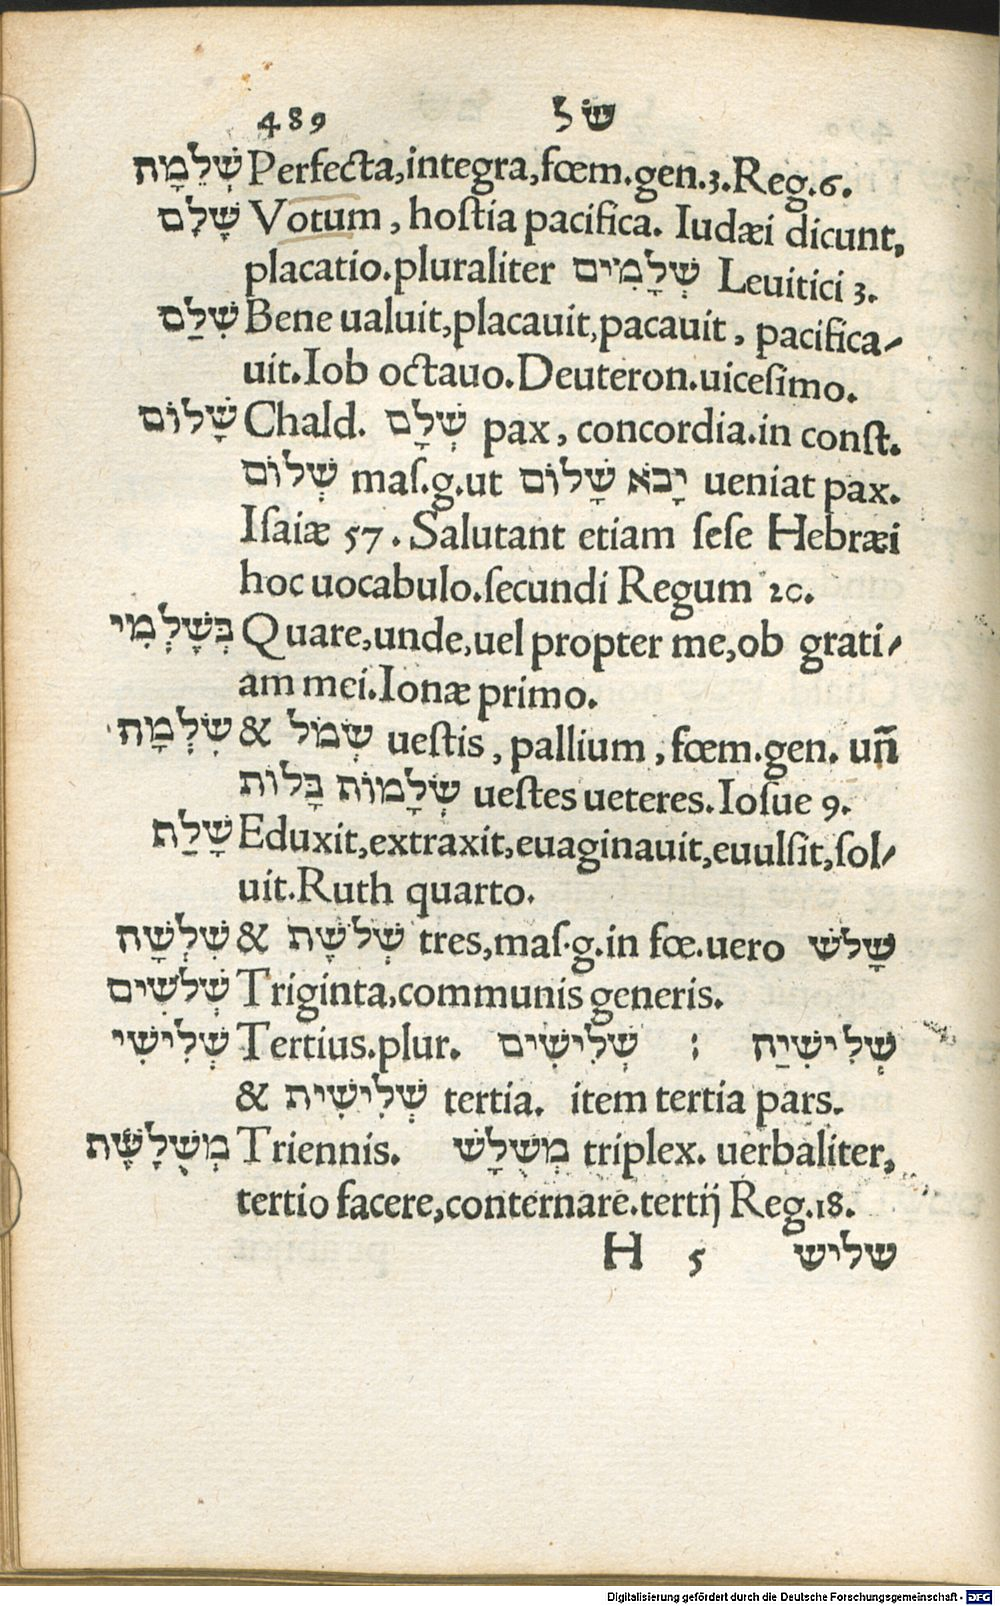 489 של
שְׁלֵמָה Perfecta, integra, fœm. gen. 3. Reg. 6.
שָׁלָם Votum, hoſtia pacifica. Iudæi dicunt,
placatio. pluraliter שְׁלָמִים Leuitici 3.
שִׁלַם Bene ualuit, placauit, pacauit, pacifica-
uit. Iob octauo. Deuteron. uiceſimo.
שָׁלוֹם Chald. שְׁלָם pax, concordia. in conſt.
שְׁלוֹם maſ. g. ut יָבֹא שָׁלוֹם ueniat pax.
Iſaiæ 57. Salutant etiam ſeſe Hebræi
hoc uocabulo. ſecundi Regum 20.
בְּשָׁלְמִי Quare, unde, uel propter me, ob grati-
am mei. Ionæ primo.
שִׂלְמָה & שְׂמֹל ueſtis, pallium, fœm. gen. uñ
שְׂלָמוֹת בָּלוֹת ueſtes ueteres. Ioſue 9.
שָׁלַת Eduxit, extraxit, euaginauit, euulſit, ſol-
uit. Ruth quarto.
שִׁלְשָׁה & שְׁלֹשֶׁת tres, maſ. g. in fœ. uero שָׁלֹשׁ
שְׁלֹשִׁים Triginta, communis generis.
שְׁלִישִׁי Tertius. plur. שְׁלִישִׁים ; שְׁלִישִׁיַה
& שְׁלִישִׁית tertia. item tertia pars.
מְשֻׁלָשֶׁת Triennis. מְשֻׁלָשׁ triplex. uerbaliter,
tertio facere, conternare. tertij Reg. 18.
H 5 שליש
Digitalisierung gefördert durch die Deutsche Forschungsgemeinschaft - DFG